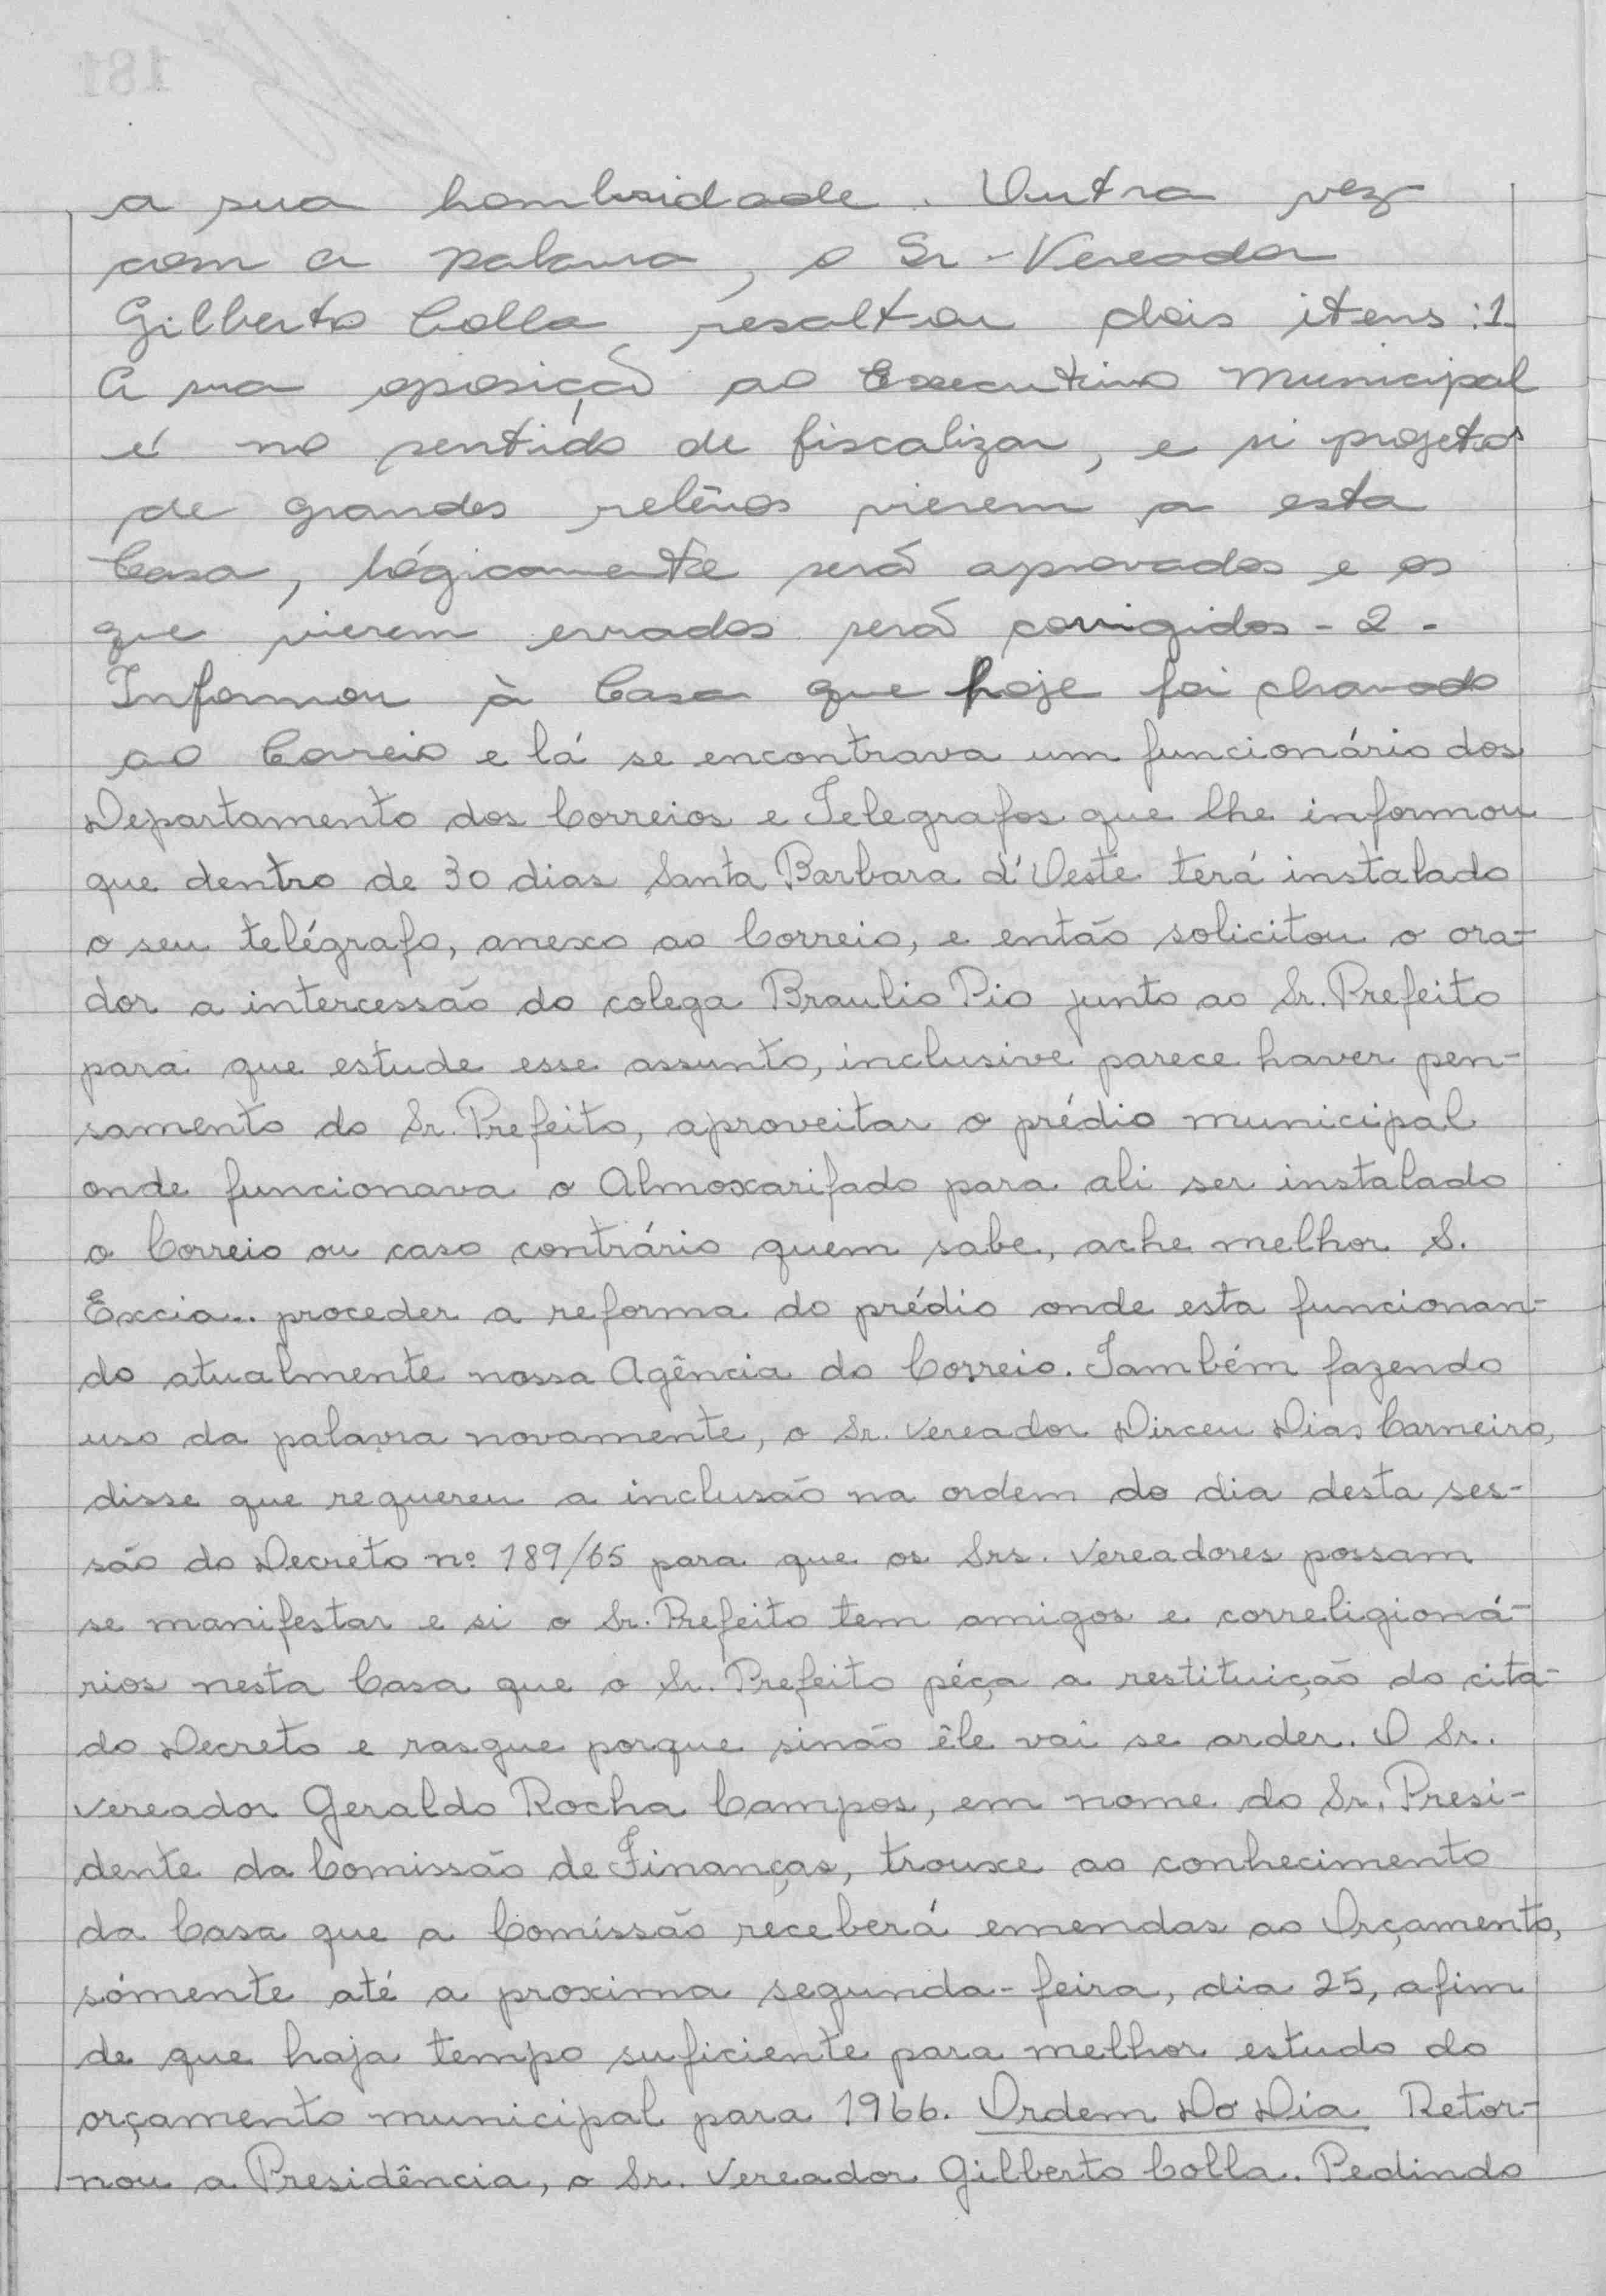 a sua hombridade. Outra vez
com a palavra, o Sr. Vereador
Gilberto Colla resaltou dois itens: 1-
A sua oposição ao Executivo Municipal
é no sentido de fiscalizar, e si projetos
de grandes relêvos vierem a esta
Casa, lógicamente será aprovados e os
que vierem errados será corrigidos - 2 -
Informou à Casa que hoje foi chamado
ao Correio e lá se encontrava um funcionário dos
Departamento dos Correios e Telegrafos que lhe informou
que dentro de 30 dias Santa Barbara d'Oeste terá instalado
o seu telégrafo, anexo ao Correio, e então solicitou o ora-
dor a intercessão do colega Braulio Pio junto ao Sr. Prefeito
para que estude esse assunto, inclusive parece haver pen-
samento do Sr. Prefeito, aproveitar o prédio municipal
onde funcionava o Almoxarifado para ali ser instalado
o Correio ou caso contrário quem sabe, ache melhor S.
Excia.. proceder a reforma do prédio onde esta funcionan-
do atualmente nossa Agência do Correio. Também fazendo
uso da palavra novamente, o Sr. Vereador Dirceu Dias Carneiro,
disse que requereu a inclusão na ordem do dia desta ses-
são do Decreto nº 189/65 para que os Srs. Vereadores possam
se manifestar e si o Sr. Prefeito tem amigos e correligioná-
rios nesta Casa que o Sr. Prefeito péça a restituição do cita-
do Decreto e rasgue porque sinão êle vai se arder. O Sr.
Vereador Geraldo Rocha Campos, em nome do Sr. Presi-
dente da Comissão de Finanças, trouxe ao conhecimento
da Casa que a Comissão receberá emendas ao Orçamento,
sómente até a proxima segunda-feira, dia 25, afim
de que haja tempo suficiente para melhor estudo do
orçamento municipal para 1966. Ordem Do Dia Retor-
nou a Presidência, o Sr. Vereador Gilberto Colla. Pedindo